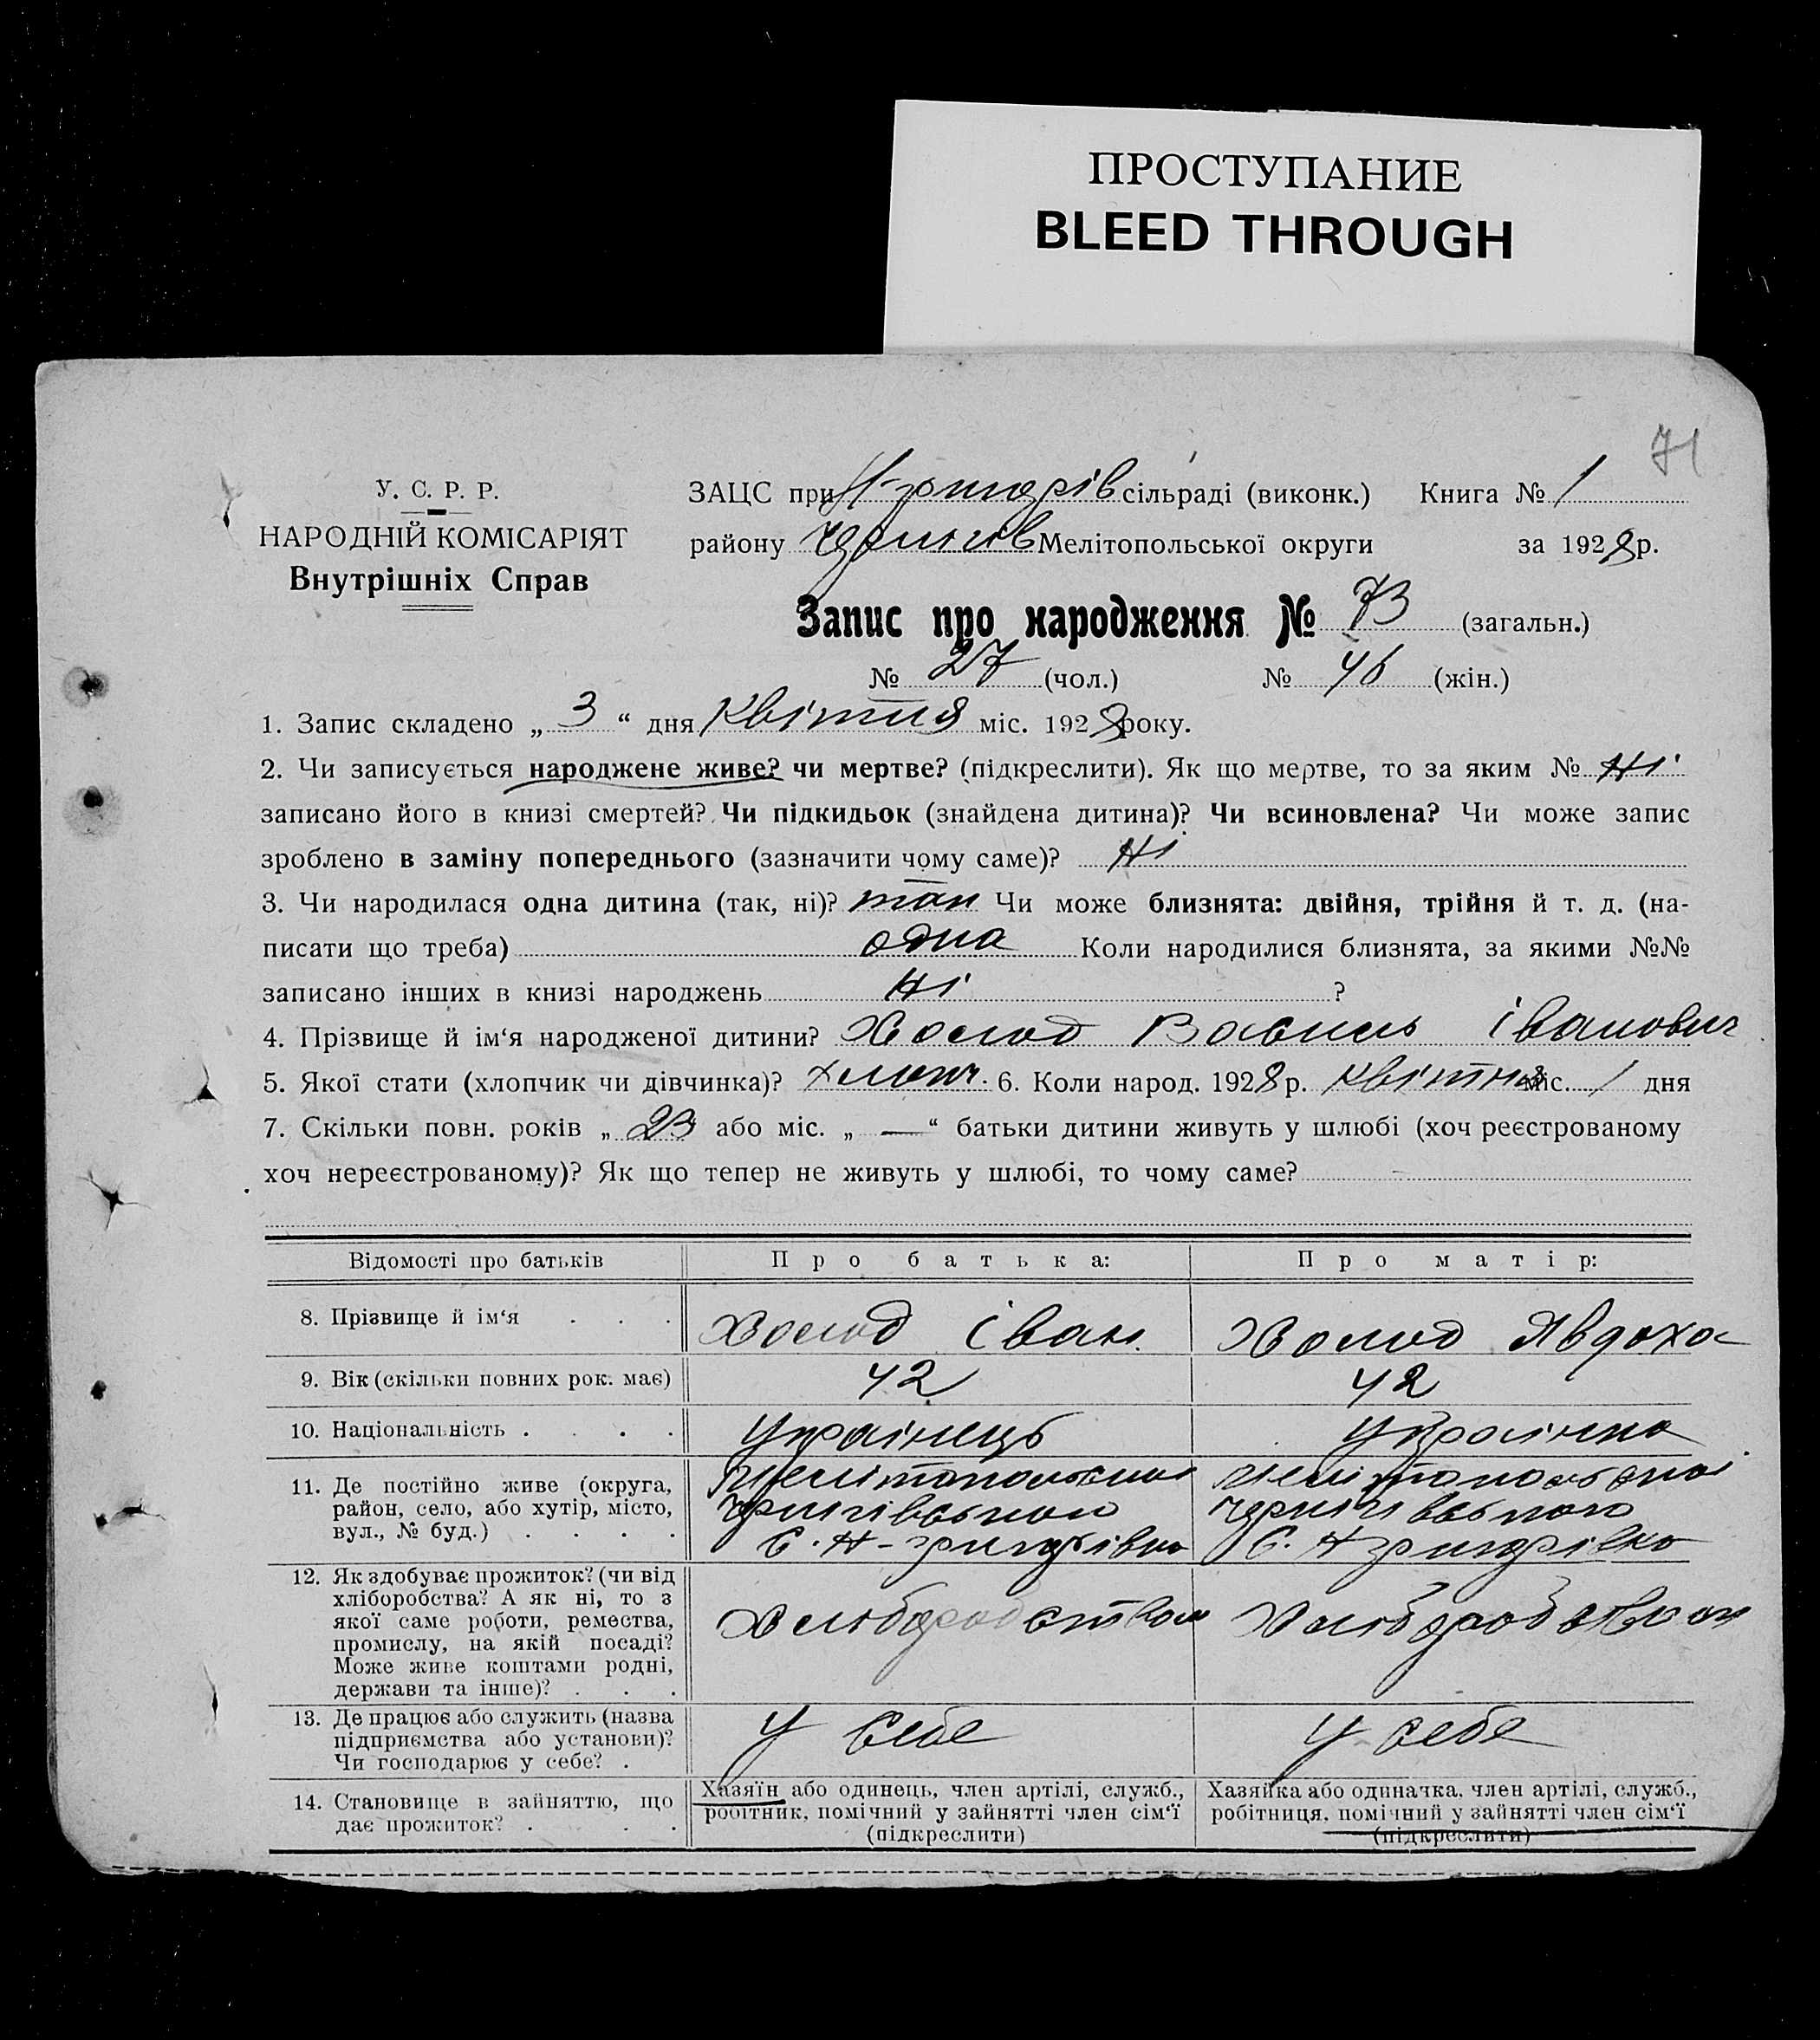 ПРОСТУПАНИЕ
BLEED THROUGH
71
У. С. Р. Р.
НАРОДНІЙ КОМІСАРІЯТ
Внутрішніх Справ
ЗАЦС при Н-григорів сільраді (виконк.) Книга № 1
району Чернигів Мелітопольської округи за 1928 р.
Запис про народження № 73 (загальн.)
№ 27 (чол.) № 46 (жін.)
1. Запис складено „ 3 “ дня Квітня міс. 1928 року.
2. Чи записується народжене живе? чи мертве? (підкреслити). Як що мертве, то за яким № Ні
записано його в книзі смертей? Чи підкидьок (знайдена дитина)? Чи всиновлена? Чи може запис
зроблено в заміну попереднього (зазначити чому саме)? Ні
3. Чи народилася одна дитина (так, ні)? так Чи може близнята: двійня, трійня й т. д. (на-
писати що треба) одна Коли народилися близнята, за якими №№
записано інших в книзі народжень Ні ?
4. Прізвище й ім‘я народженої дитини? Холод Василь Іванович
5. Якої стати (хлопчик чи дівчинка)? Хлопч. 6. Коли народ. 1928 р. Квітня міс. 1 дня
7. Скільки повн. років „ 23 або міс. „ — “ батьки дитини живуть у шлюбі (хоч реєстрованому
хоч нереєстрованому)? Як що тепер не живуть у шлюбі, то чому саме?
Відомості про батьків Про батька: Про матір:
8. Прізвище й ім‘я . . . Холод Іван. Холод Явдоха
9. Вік (скільки повних рок. має) 42 42
10. Національність . . . . Українець Українка
11. Де постійно живе (округа,
район, село, або хутір, місто,
вул., № буд.) . . . .
Мелітопольської
Чернигівського
С. Н-григорівка
Мелітопольської
Чернигівського
С. Н григорівка
12. Як здобуває прожиток? (чи від
хліборобства? А як ні, то з
якої саме роботи, ремества,
промислу, на якій посаді?
Може живе коштами родні,
держави та інше)? . . .
Хлюборобством
Хлюборобством
13. Де працює або служить (назва
підприємства або установи)?
Чи господарює у себе? .
У себе
У себе
14. Становище в зайняттю, що
дає прожиток? . . .
Хазяїн або одинець, член артілі, служб.,
робітник, помічний у зайнятті член сім‘ї
(підкреслити)
Хазяйка або одиначка, член артілі, служб.,
робітниця, помічний у зайнятті член сім‘ї
(підкреслити)